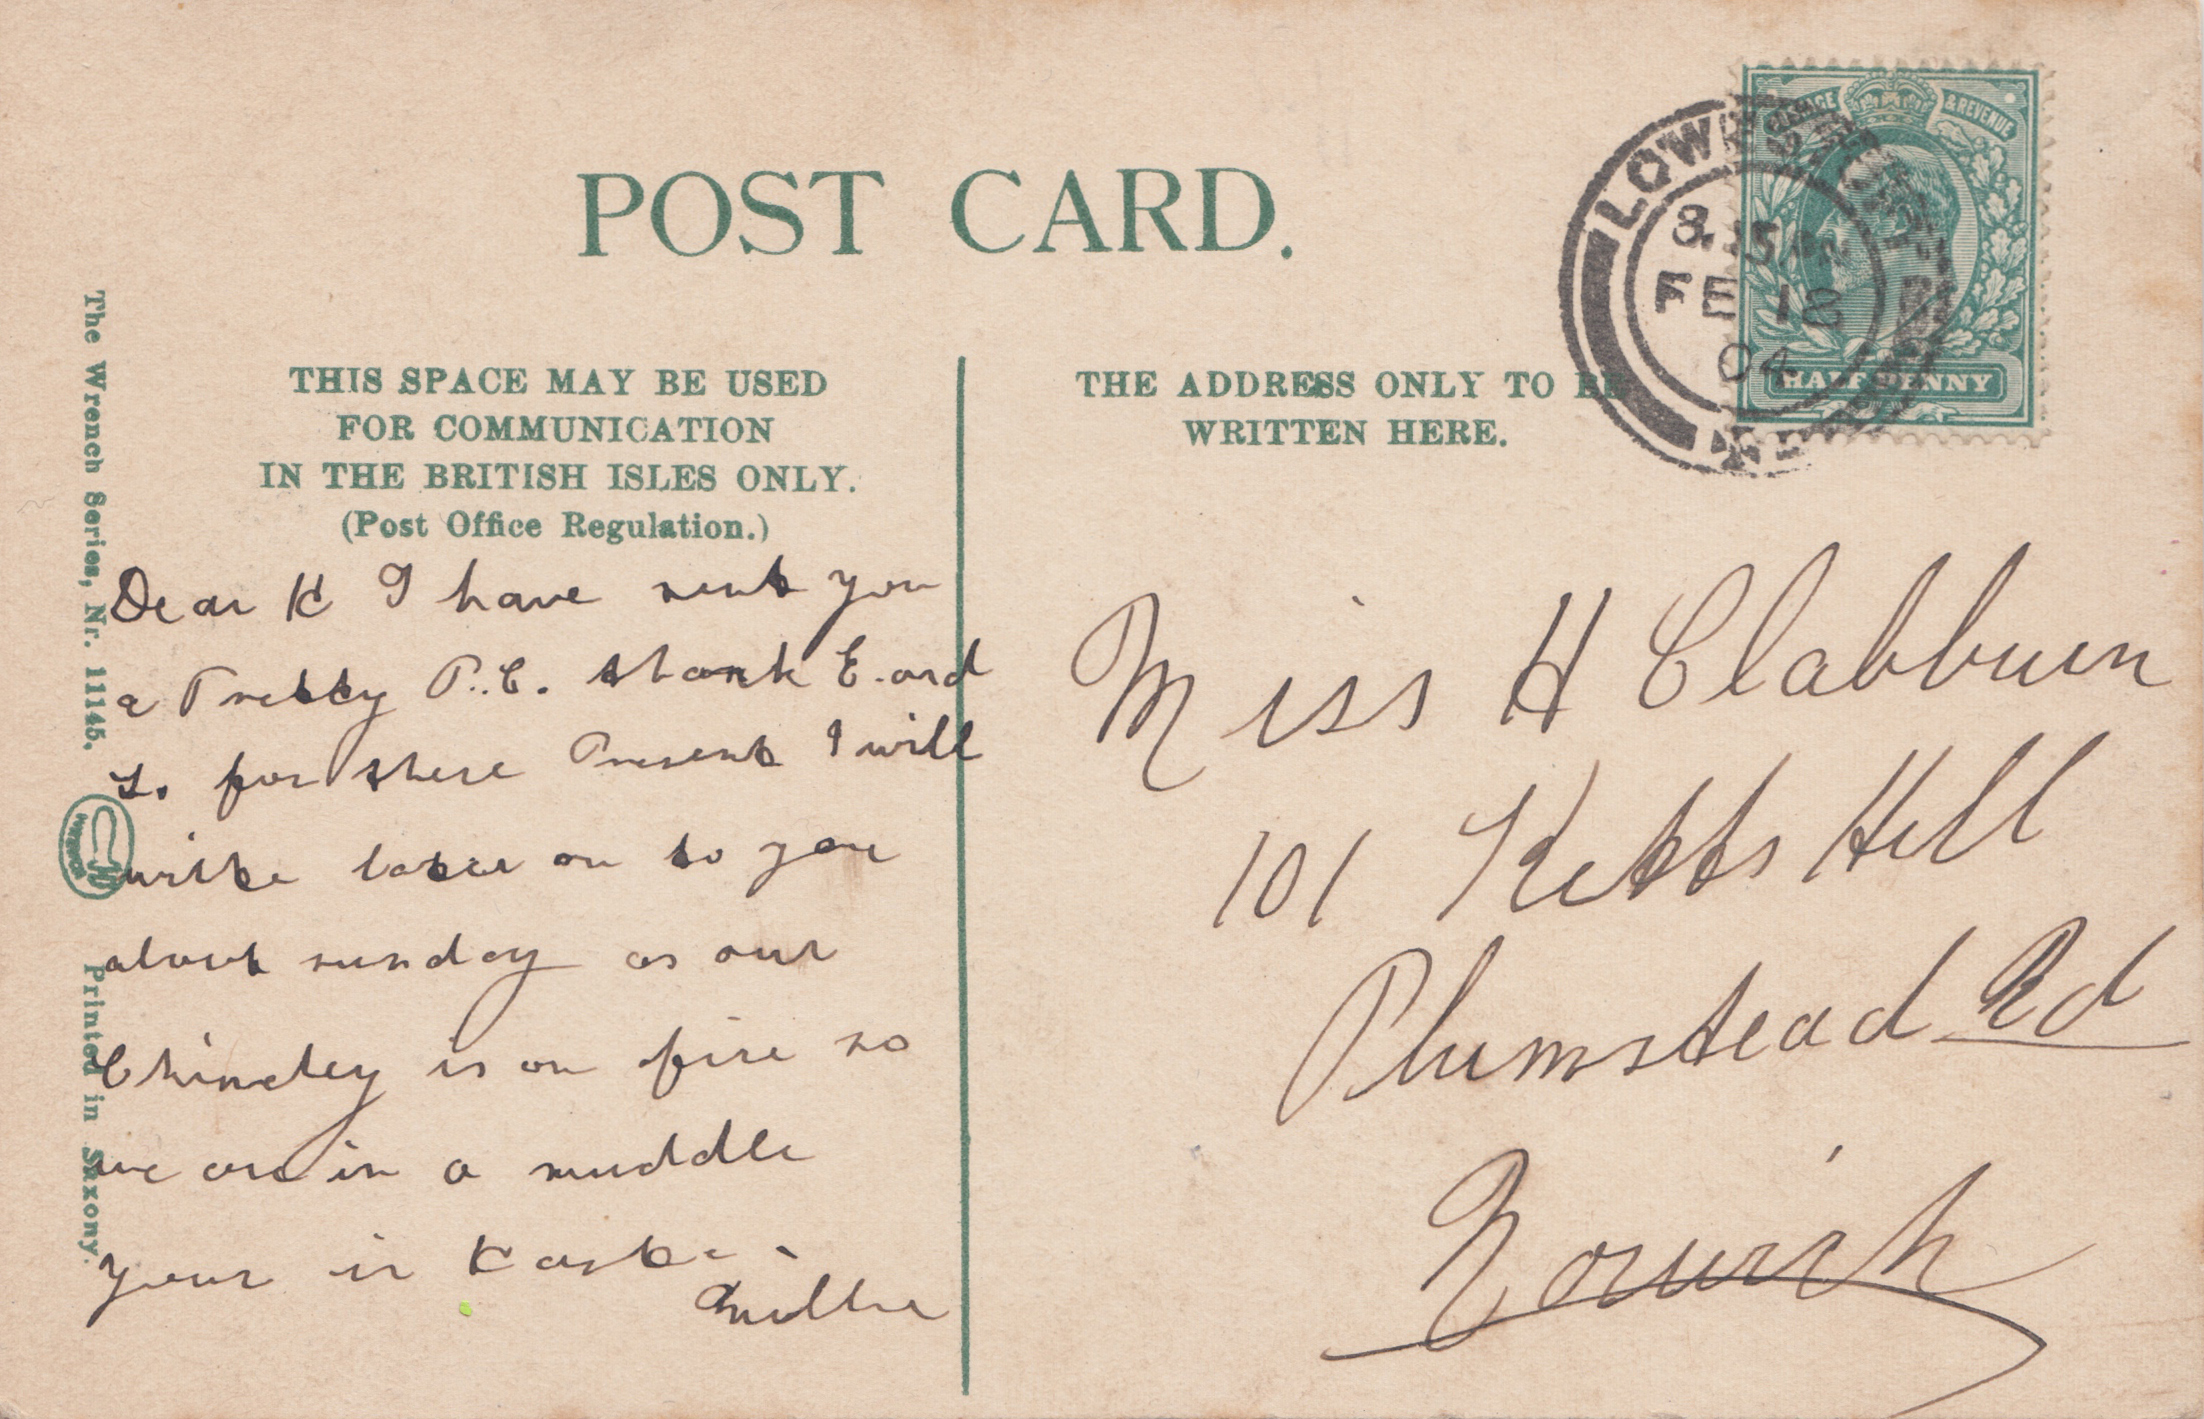 POST CARD.
THIS SPACE MAY BE USED
FOR COMMUNICATION
IN THE BRITISH ISLES ONLY.
(Post Office Regulation.)
THE ADDRESS ONLY TO BE
WRITTEN HERE.
POSTAGE & REVENUE
HALF PENNY
LOWESTOFT
8.15 AM
FE 18
04
The Wrench Series, Nr. 11145.
WRENCH
Printed in Saxony.
Dear H I have sent you
a Pretty P.C. thank E. and
L. for there Present I will
write later on to you
about sunday as our
Chimley is on fire so
we are in a muddle
your in haste
Millie
Miss H Clabburn
101 Ketts Hill
Plumstead Rd
Norwich